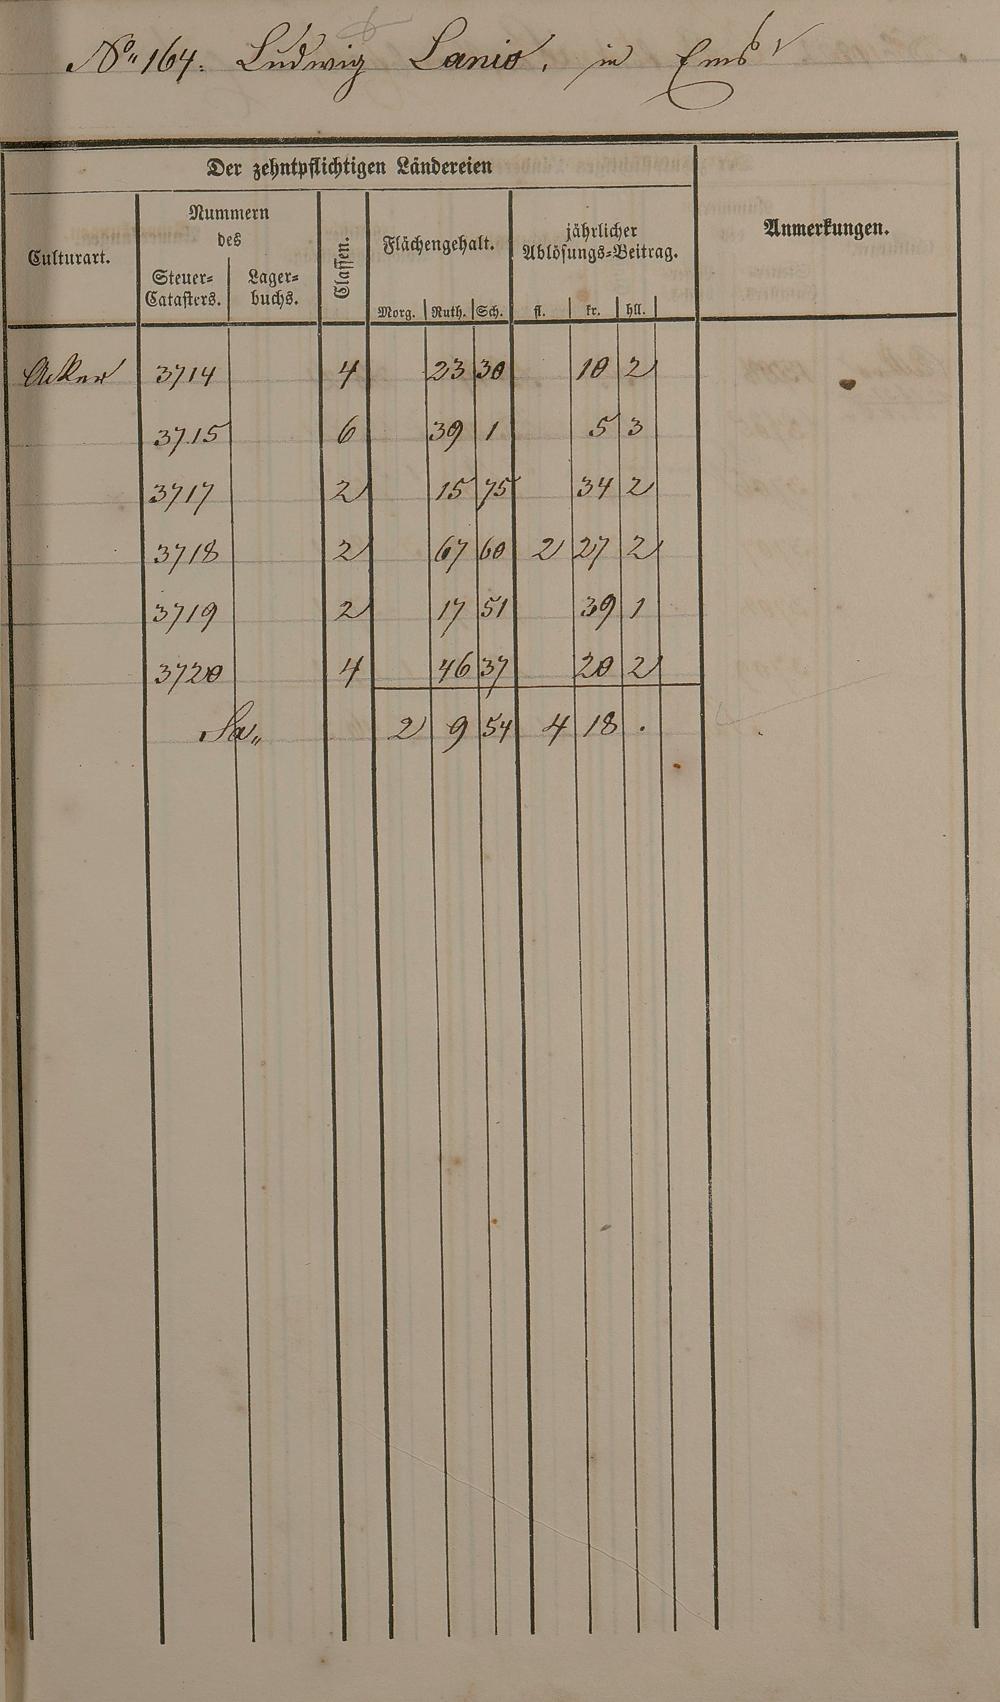 No. 164. Ludwig Lanio, in Ems
Der zehntpflichtigen Ländereien
Anmerkungen.
Culturart.
Nummern
des
Steuer-
Catasters.
Lager-
buchs.
Classen.
Flächengehalt.
Morg. Ruth. Sch.
jährlicher
Ablösungs-Beitrag.
fl. kr. hll.
Acker 3714 4 23 30 10 2
3715 6 39 1 5 3
3717 2 15 75 34 2
3718 2 67 60 2 27 2
3719 2 17 51 39 1
3720 4 46 37 20 2
Sa„ 2 9 54 4 18 .